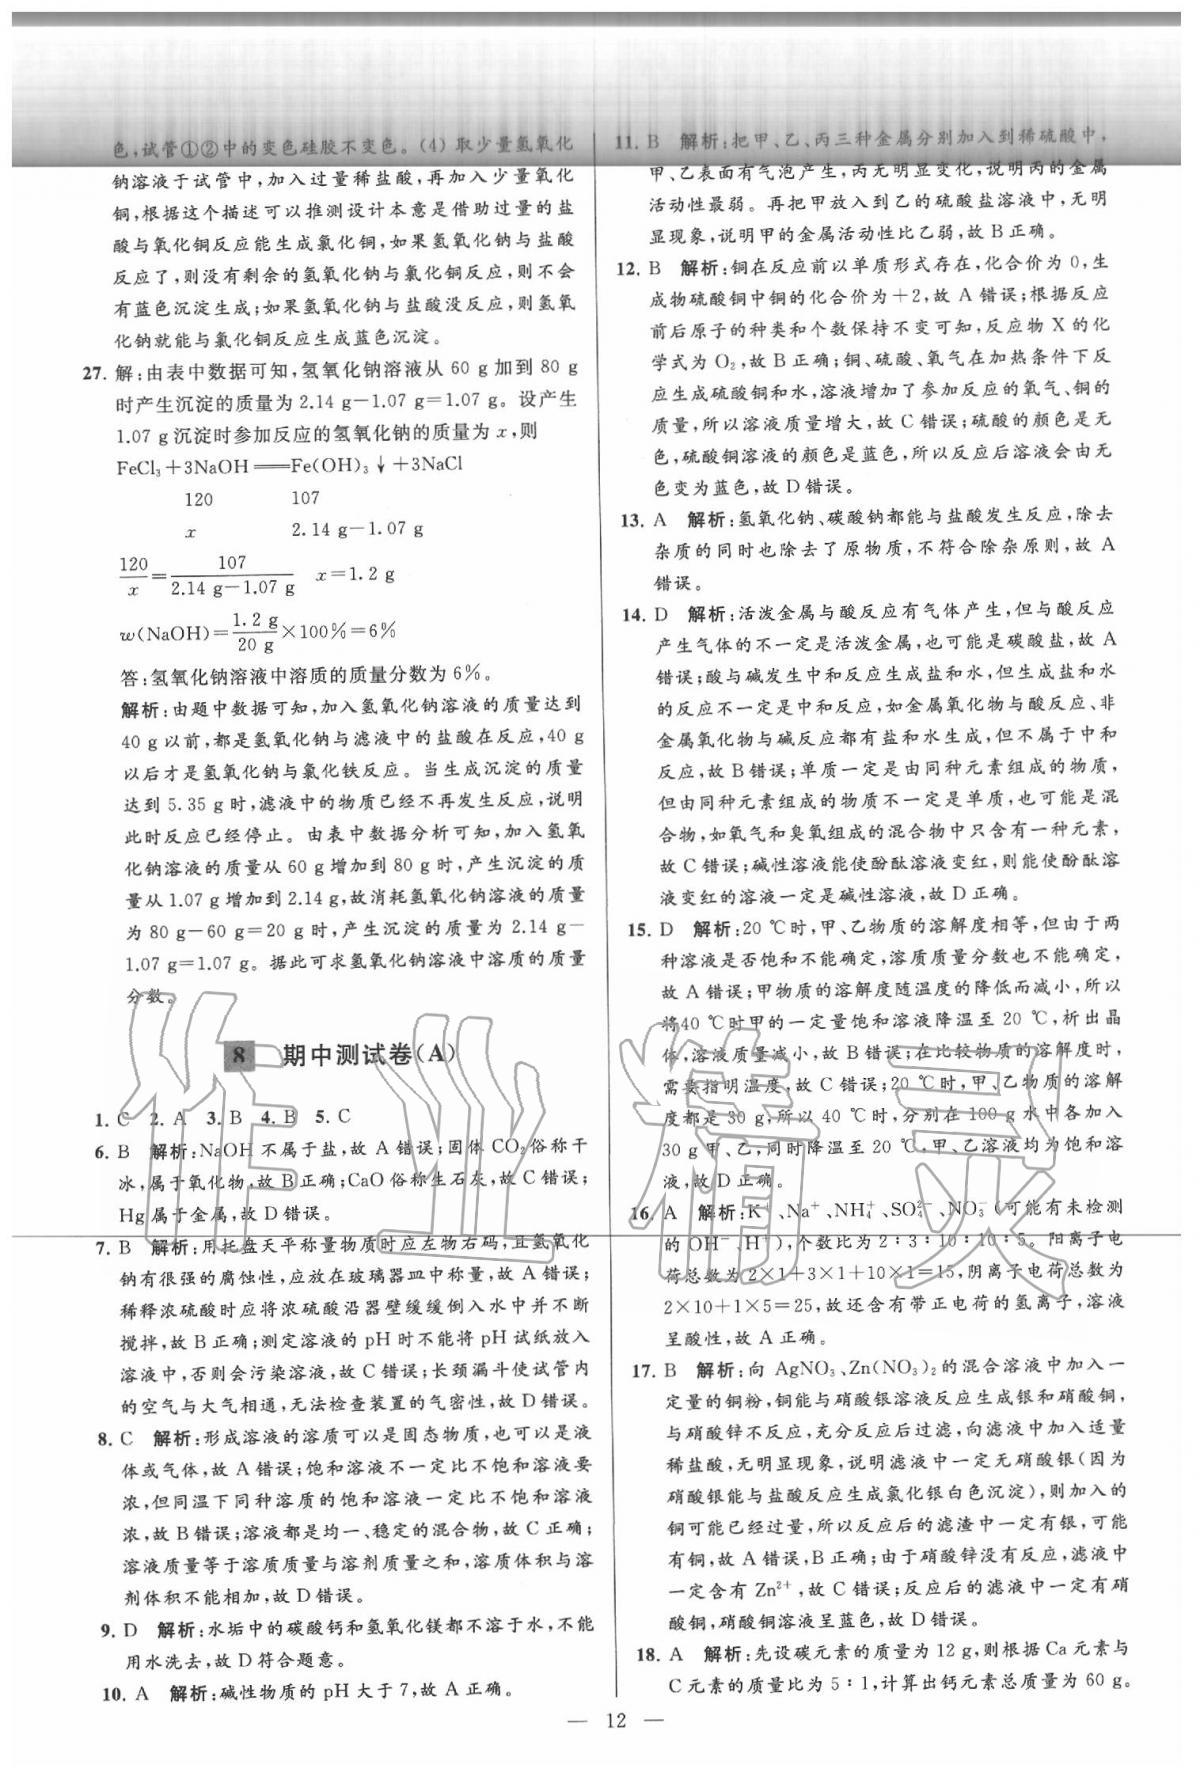 色,试管①②中的变色硅胶不变色。(4) 取少量氢氧化
钠溶液于试管中,加入过量稀盐酸,再加入少量氧化
铜,根据这个描述可以推测设计本意是借助过量的盐
酸与氧化铜反应能生成氯化铜,如果氢氧化钠与盐酸
反应了,则没有剩余的氢氧化钠与氯化铜反应,则不会
有蓝色沉淀生成;如果氢氧化钠与盐酸没反应,则氢氧
化钠就能与氯化铜反应生成蓝色沉淀。
27. 解:由表中数据可知,氢氧化钠溶液从 60 g 加到 80 g
时产生沉淀的质量为 2.14 g-1.07 g=1.07 g。设产生
1.07 g 沉淀时参加反应的氢氧化钠的质量为 x,则
FeCl₃+3NaOH══Fe(OH)₃↓+3NaCl
120 107
x 2.14 g-1.07 g
120/x=107/(2.14 g-1.07 g) x=1.2 g
w(NaOH)=1.2 g/20 g×100%=6%
答:氢氧化钠溶液中溶质的质量分数为 6%。
解析:由题中数据可知,加入氢氧化钠溶液的质量达到
40 g 以前,都是氢氧化钠与滤液中的盐酸在反应,40 g
以后才是氢氧化钠与氯化铁反应。当生成沉淀的质量
达到 5.35 g 时,滤液中的物质已经不再发生反应,说明
此时反应已经停止。由表中数据分析可知,加入氢氧
化钠溶液的质量从 60 g 增加到 80 g 时,产生沉淀的质
量从 1.07 g 增加到 2.14 g,故消耗氢氧化钠溶液的质量
为 80 g-60 g=20 g 时,产生沉淀的质量为 2.14 g-
1.07 g=1.07 g。据此可求氢氧化钠溶液中溶质的质量
分数。
8 期中测试卷(A)
1. C 2. A 3. B 4. B 5. C
6. B 解析:NaOH 不属于盐,故 A 错误;固体 CO₂ 俗称干
冰,属于氧化物,故 B 正确;CaO 俗称生石灰,故 C 错误;
Hg 属于金属,故 D 错误。
7. B 解析:用托盘天平称量物质时应左物右码,且氢氧化
钠有很强的腐蚀性,应放在玻璃器皿中称量,故 A 错误;
稀释浓硫酸时应将浓硫酸沿器壁缓缓倒入水中并不断
搅拌,故 B 正确;测定溶液的 pH 时不能将 pH 试纸放入
溶液中,否则会污染溶液,故 C 错误;长颈漏斗使试管内
的空气与大气相通,无法检查装置的气密性,故 D 错误。
8. C 解析:形成溶液的溶质可以是固态物质,也可以是液
体或气体,故 A 错误;饱和溶液不一定比不饱和溶液要
浓,但同温下同种溶质的饱和溶液一定比不饱和溶液
浓,故 B 错误;溶液都是均一、稳定的混合物,故 C 正确;
溶液质量等于溶质质量与溶剂质量之和,溶质体积与溶
剂体积不能相加,故 D 错误。
9. D 解析:水垢中的碳酸钙和氢氧化镁都不溶于水,不能
用水洗去,故 D 符合题意。
10. A 解析:碱性物质的 pH 大于 7,故 A 正确。
11. B 解析:把甲、乙、丙三种金属分别加入到稀硫酸中,
甲、乙表面有气泡产生,丙无明显变化,说明丙的金属
活动性最弱。再把甲放入到乙的硫酸盐溶液中,无明
显现象,说明甲的金属活动性比乙弱,故 B 正确。
12. B 解析:铜在反应前以单质形式存在,化合价为 0,生
成物硫酸铜中铜的化合价为+2,故 A 错误;根据反应
前后原子的种类和个数保持不变可知,反应物 X 的化
学式为 O₂,故 B 正确;铜、硫酸、氧气在加热条件下反
应生成硫酸铜和水,溶液增加了参加反应的氧气、铜的
质量,所以溶液质量增大,故 C 错误;硫酸的颜色是无
色,硫酸铜溶液的颜色是蓝色,所以反应后溶液会由无
色变为蓝色,故 D 错误。
13. A 解析:氢氧化钠、碳酸钠都能与盐酸发生反应,除去
杂质的同时也除去了原物质,不符合除杂原则,故 A
错误。
14. D 解析:活泼金属与酸反应有气体产生,但与酸反应
产生气体的不一定是活泼金属,也可能是碳酸盐,故 A
错误;酸与碱发生中和反应生成盐和水,但生成盐和水
的反应不一定是中和反应,如金属氧化物与酸反应、非
金属氧化物与碱反应都有盐和水生成,但不属于中和
反应,故 B 错误;单质一定是由同种元素组成的物质,
但由同种元素组成的物质不一定是单质,也可能是混
合物,如氧气和臭氧组成的混合物中只含有一种元素,
故 C 错误;碱性溶液能使酚酞溶液变红,则能使酚酞溶
液变红的溶液一定是碱性溶液,故 D 正确。
15. D 解析:20 ℃时,甲、乙物质的溶解度相等,但由于两
种溶液是否饱和不能确定,溶质质量分数也不能确定,
故 A 错误;甲物质的溶解度随温度的降低而减小,所以
将40 ℃时甲的一定量饱和溶液降温至 20 ℃,析出晶
体,溶液质量减小,故 B 错误;在比较物质的溶解度时,
需要指明温度,故 C 错误;20 ℃时,甲、乙物质的溶解
度都是 30 g,所以 40 ℃时,分别在 100 g 水中各加入
30 g 甲、乙,同时降温至 20 ℃,甲、乙溶液均为饱和溶
液,故 D 正确。
16. A 解析:K⁺、Na⁺、NH₄⁺、SO₄²⁻、NO₃⁻(可能有未检测
的 OH⁻、H⁺),个数比为 2∶3∶10∶10∶5。阳离子电
荷总数为 2×1+3×1+10×1=15,阴离子电荷总数为
2×10+1×5=25,故还含有带正电荷的氢离子,溶液
呈酸性,故 A 正确。
17. B 解析:向 AgNO₃、Zn(NO₃)₂ 的混合溶液中加入一
定量的铜粉,铜能与硝酸银溶液反应生成银和硝酸铜,
与硝酸锌不反应,充分反应后过滤,向滤液中加入适量
稀盐酸,无明显现象,说明滤液中一定无硝酸银(因为
硝酸银能与盐酸反应生成氯化银白色沉淀),则加入的
铜可能已经过量,所以反应后的滤渣中一定有银,可能
有铜,故 A 错误,B 正确;由于硝酸锌没有反应,滤液中
一定含有 Zn²⁺,故 C 错误;反应后的滤液中一定有硝
酸铜,硝酸铜溶液呈蓝色,故 D 错误。
18. A 解析:先设碳元素的质量为 12 g,则根据 Ca 元素与
C 元素的质量比为 5∶1,计算出钙元素总质量为 60 g。
— 12 —
作业精灵